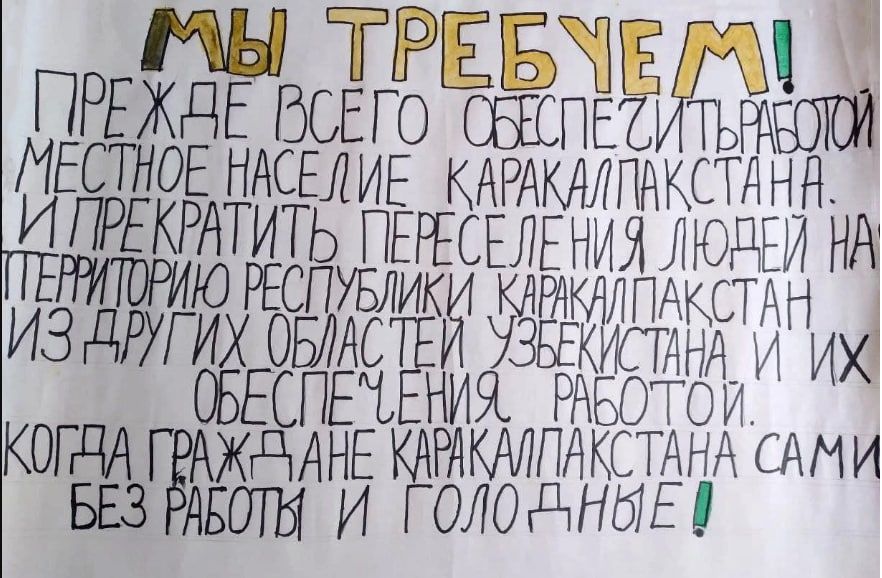 МЫ ТРЕБУЕМ!
ПРЕЖДЕ ВСЕГО ОБЕСПЕЧИТЬ РАБОТОЙ
МЕСТНОЕ НАСЕЛИЕ КАРАКАЛПАКСТАНА.
И ПРЕКРАТИТЬ ПЕРЕСЕЛЕНИЯ ЛЮДЕЙ НА
ТЕРРИТОРИЮ РЕСПУБЛИКИ КАРАКАЛПАКСТАН
ИЗ ДРУГИХ ОБЛАСТЕЙ УЗБЕКИСТАНА И ИХ
ОБЕСПЕЧЕНИЯ РАБОТОЙ.
КОГДА ГРАЖДАНЕ КАРАКАЛПАКСТАНА САМИ
БЕЗ РАБОТЫ И ГОЛОДНЫЕ!